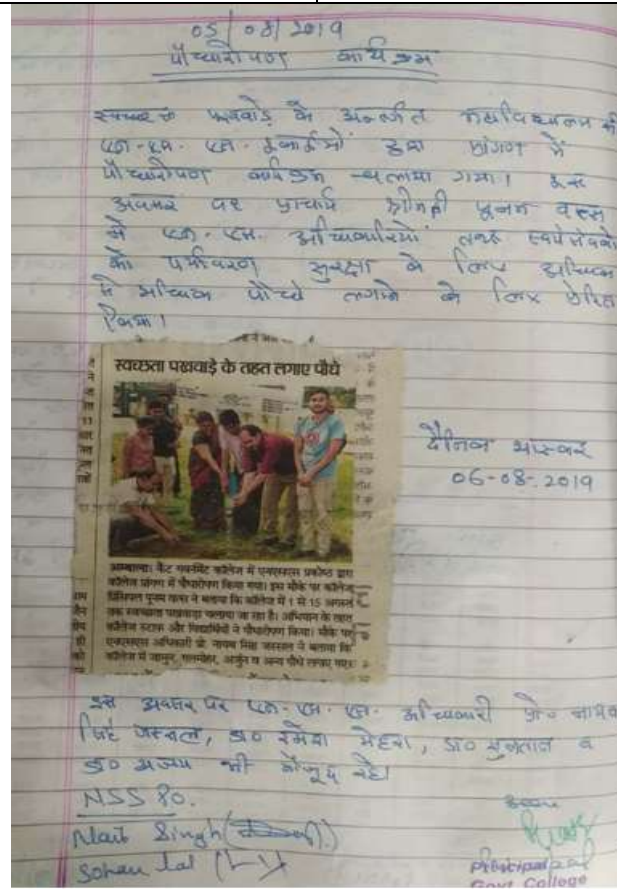 05/08/2019
पौधारोपण कार्यक्रम
स्वच्छता पखवाड़े के अन्तर्गत महाविद्यालय की
एन. एस. एस. इकाईयों द्वारा प्रांगण में
पौधारोपण कार्यक्रम चलाया गया। इस
अवसर पर प्राचार्य श्रीमती पूनम वत्स
ने एन. एस. अधिकारियों तथा स्वयंसेवकों
को पर्यावरण सुरक्षा के लिए अधिक
से अधिक पौधे लगाने के लिए प्रेरित
किया।
स्वच्छता पखवाड़े के तहत लगाए पौधे
दैनिक भास्कर
06-08-2019
अम्बाला। कैंट गवर्नमेंट कॉलेज में एनएसएस प्रकोष्ठ द्वारा
कॉलेज प्रांगण में पौधारोपण किया गया। इस मौके पर कॉलेज
प्रिंसिपल पूनम वत्स ने बताया कि कॉलेज में 1 से 15 अगस्त
तक स्वच्छता पखवाड़ा चलाया जा रहा है। अभियान के तहत
कॉलेज स्टाफ और विद्यार्थियों ने पौधारोपण किया। मौके पर
एनएसएस अधिकारी प्रो. नायब सिंह जस्सल ने बताया कि
कॉलेज में जामुन, गुलमोहर, अर्जुन व अन्य पौधे लगाए गए।
इस अवसर पर एन. एस. एस. अधिकारी प्रो० नायब
सिंह जस्सल, डा० रमेश मेहरा, डा० सुलतान व
डा० अजय भी मौजूद रहे।
NSS PO.
Naib Singh
Sohan Lal
Principal
Govt College